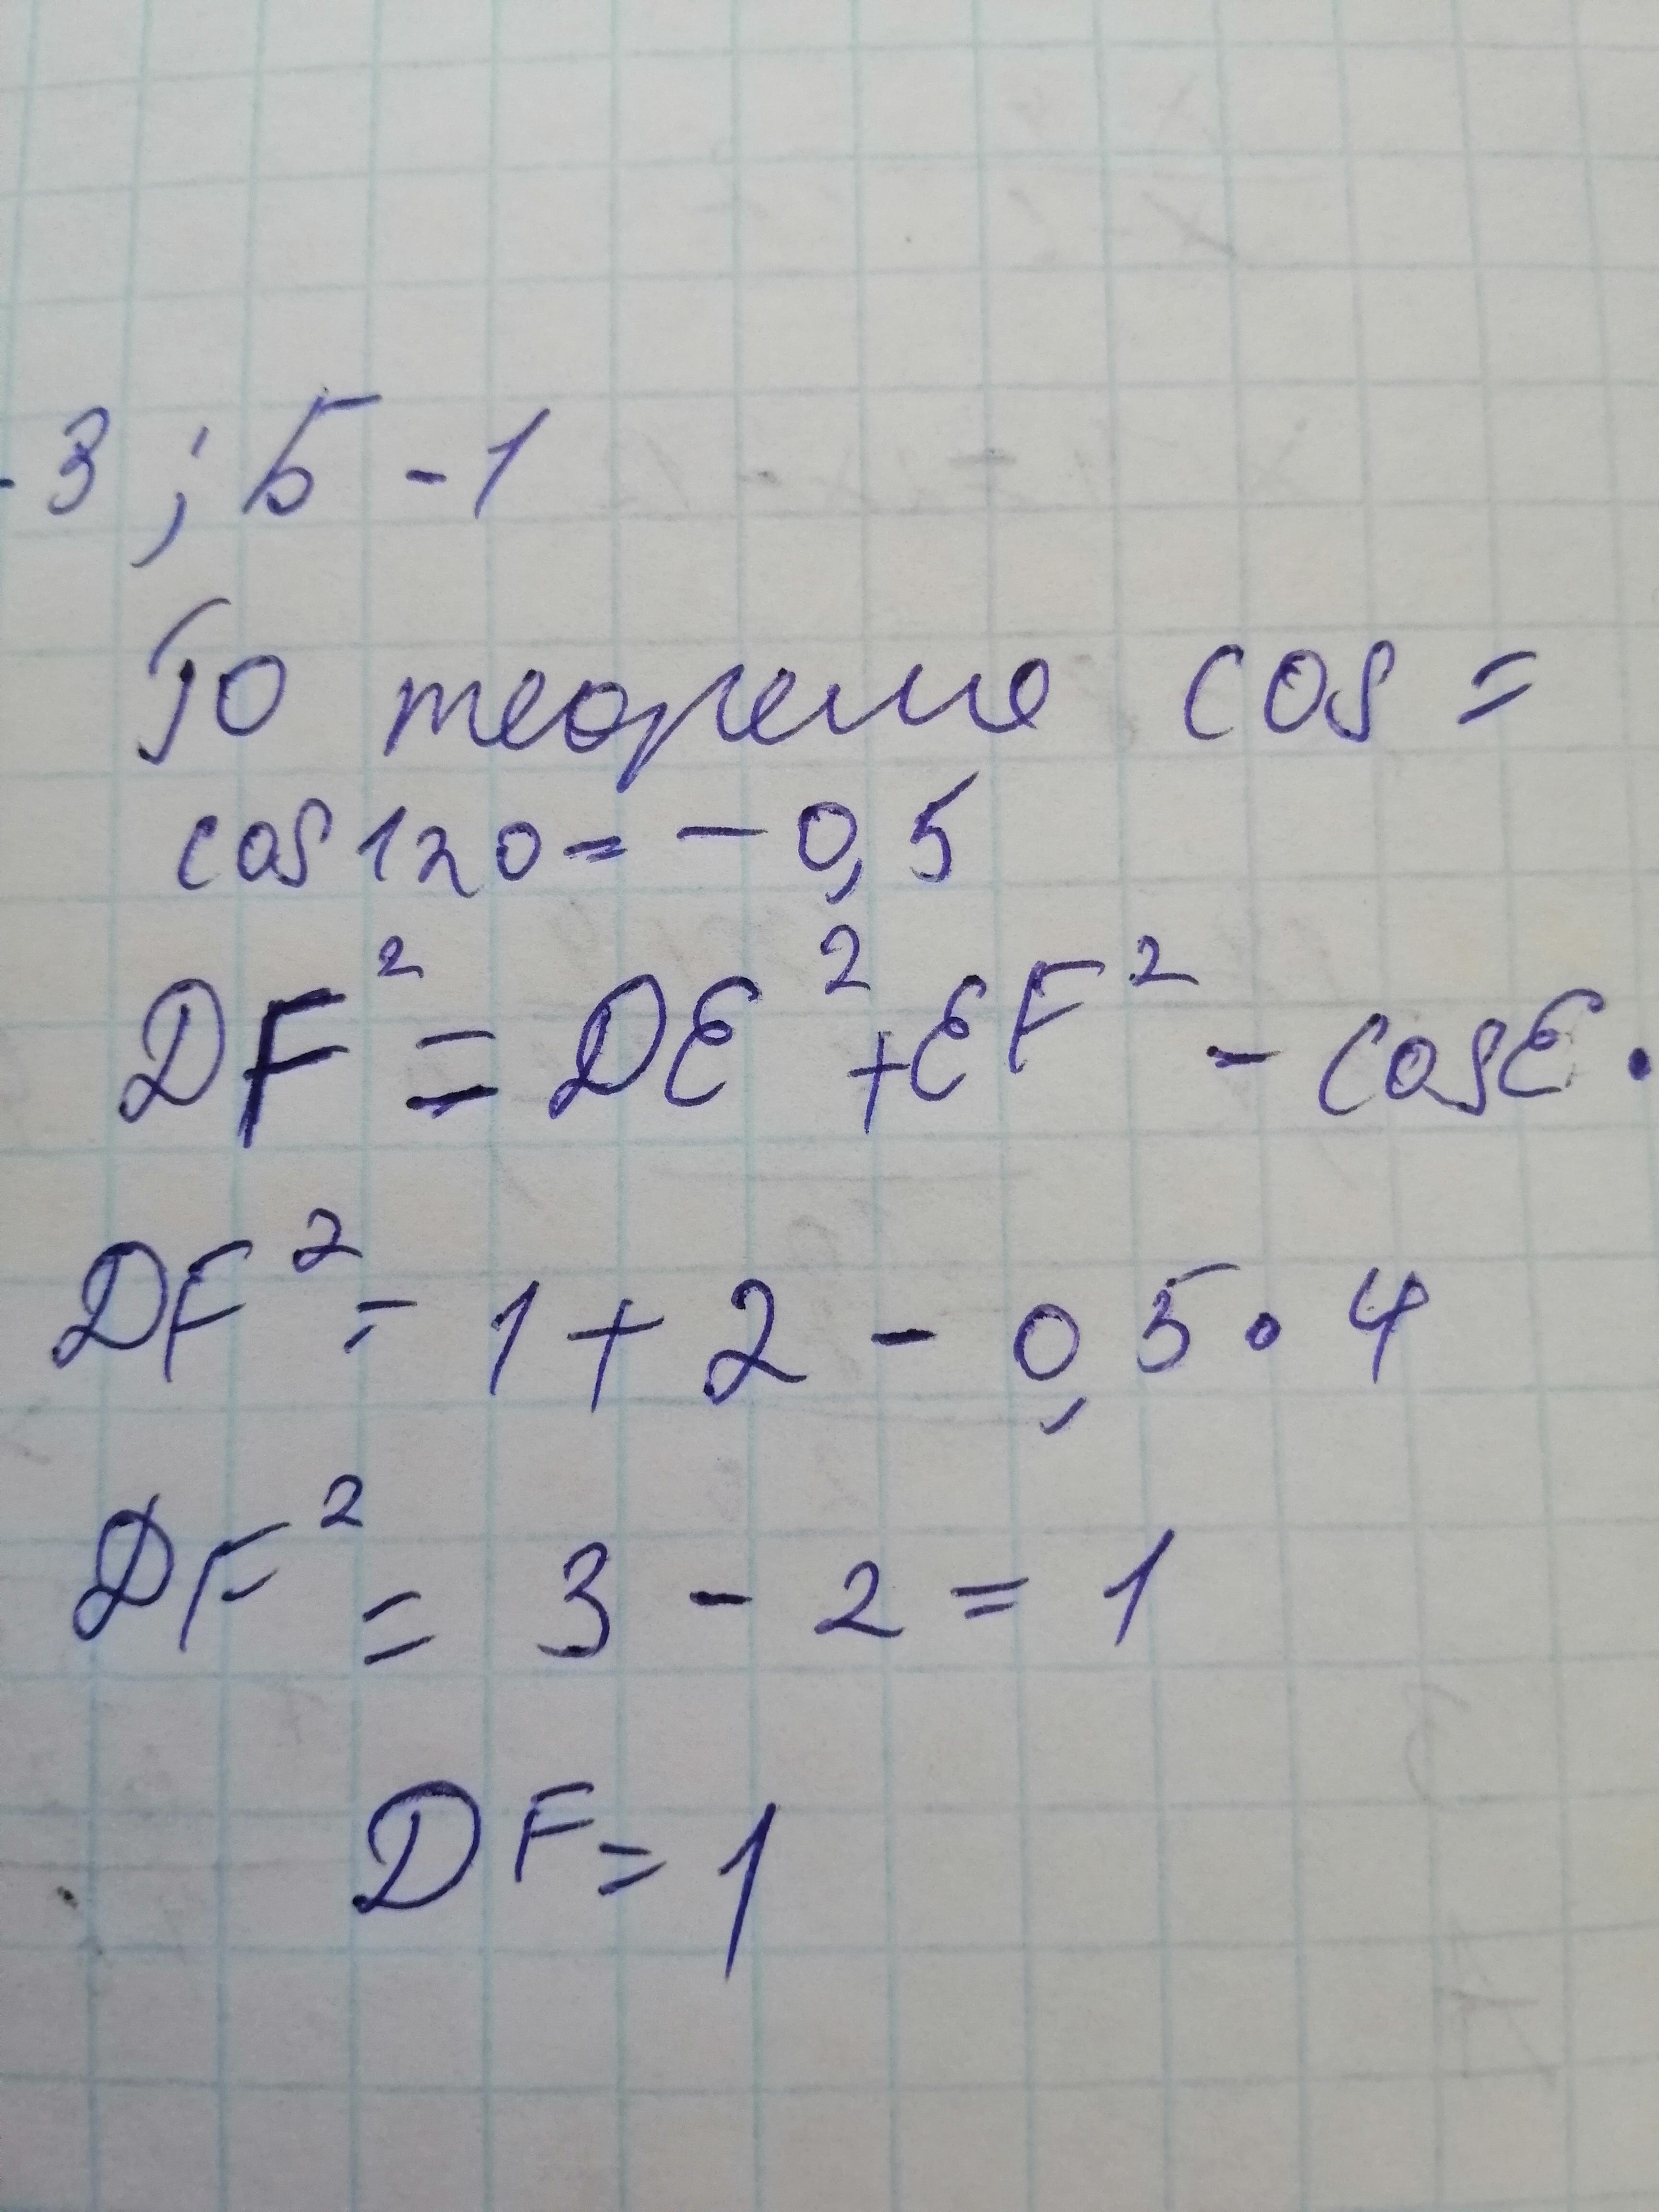 - 3 ; Б - 1
По теореме cos =
cos 120 = - 0,5
DF² = DE² + EF² - cosE ·
DF² = 1 + 2 - 0,5 · 4
DF² = 3 - 2 = 1
DF = 1